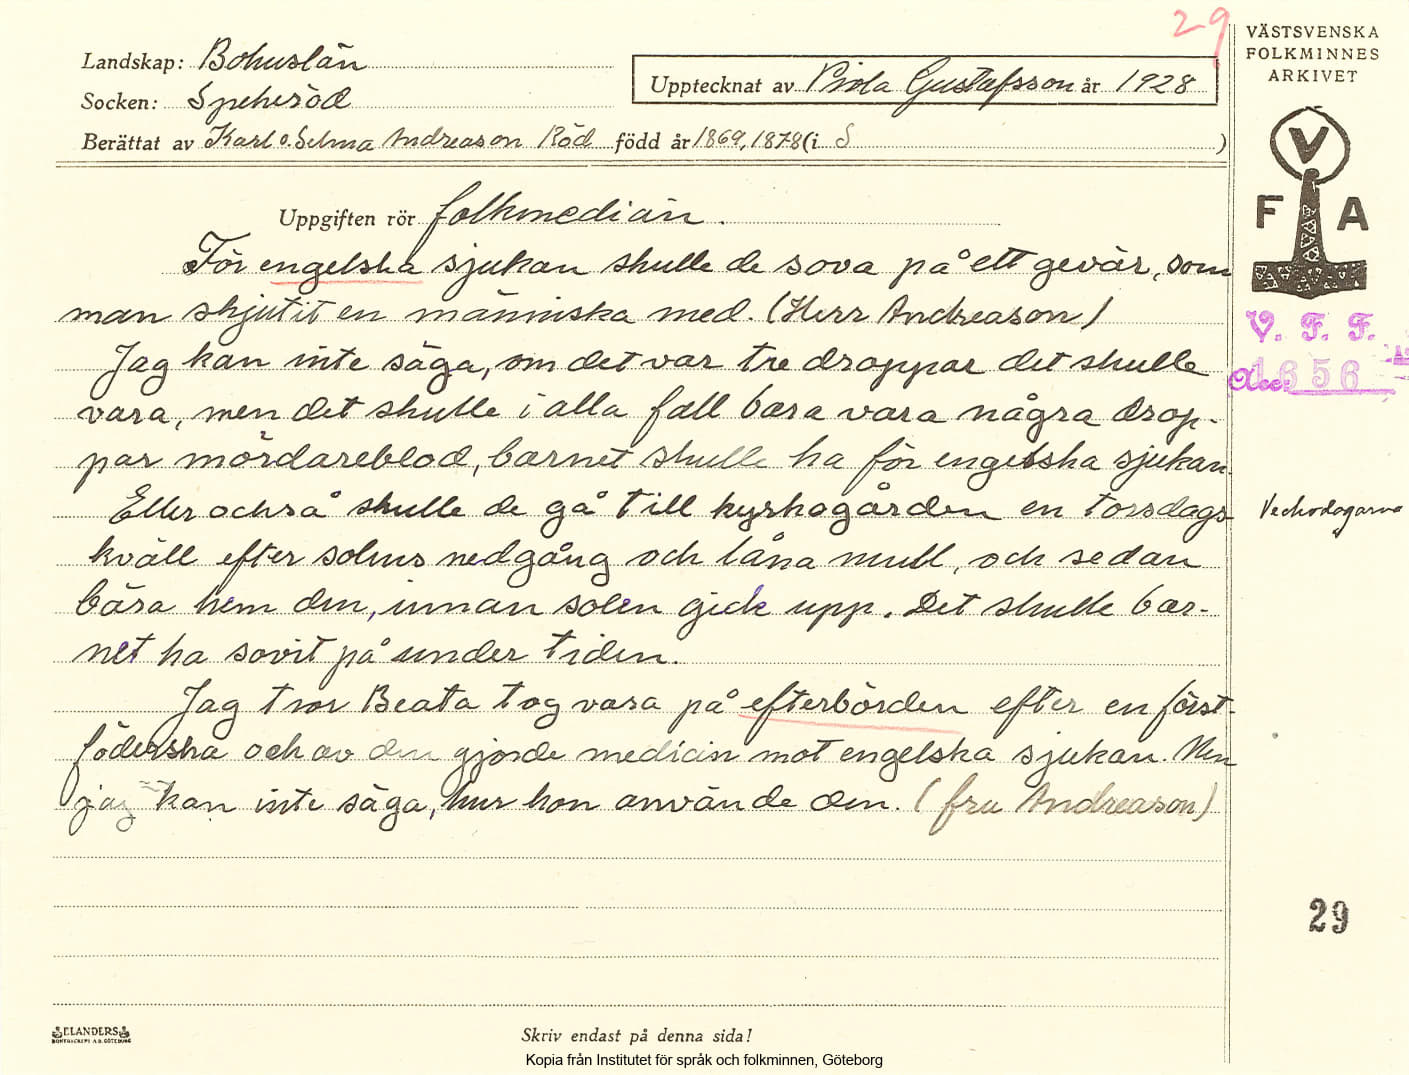 29
VÄSTSVENSKA
FOLKMINNES
ARKIVET
Landskap: Bohuslän
Upptecknat av Viola Gustafsson år 1928
Socken: Spekeröd
Berättat av Karl o. Selma Andreason Röd född år 1869, 1878 (i S )
V
F A
Uppgiften rör folkmedicin.
För engelska sjukan skulle de sova på ett gevär, som
man skjutit en människa med. (Herr Andreason)
V. F. F.
Acc: 1656
Jag kan inte säga, om det var tre droppar det skulle
vara, men det skulle i alla fall bara vara några drop-
par mördareblod, barnet skulle ha för engelska sjukan.
Eller också skulle de gå till kyrkogården en torsdags
Veckodagarna
kväll efter solens nedgång och låna mull, och sedan
bära hem den, innan solen gick upp. Det skulle bar-
net ha sovit på under tiden.
Jag tror Beata tog vara på efterbörden efter en först-
föderska och av den gjorde medicin mot engelska sjukan. Men
jag kan inte säga, hur hon använde den. (fru Andreason)
29
ELANDERS
BOKTRYCKERI A.B. GÖTEBORG
Skriv endast på denna sida!
Kopia från Institutet för språk och folkminnen, Göteborg